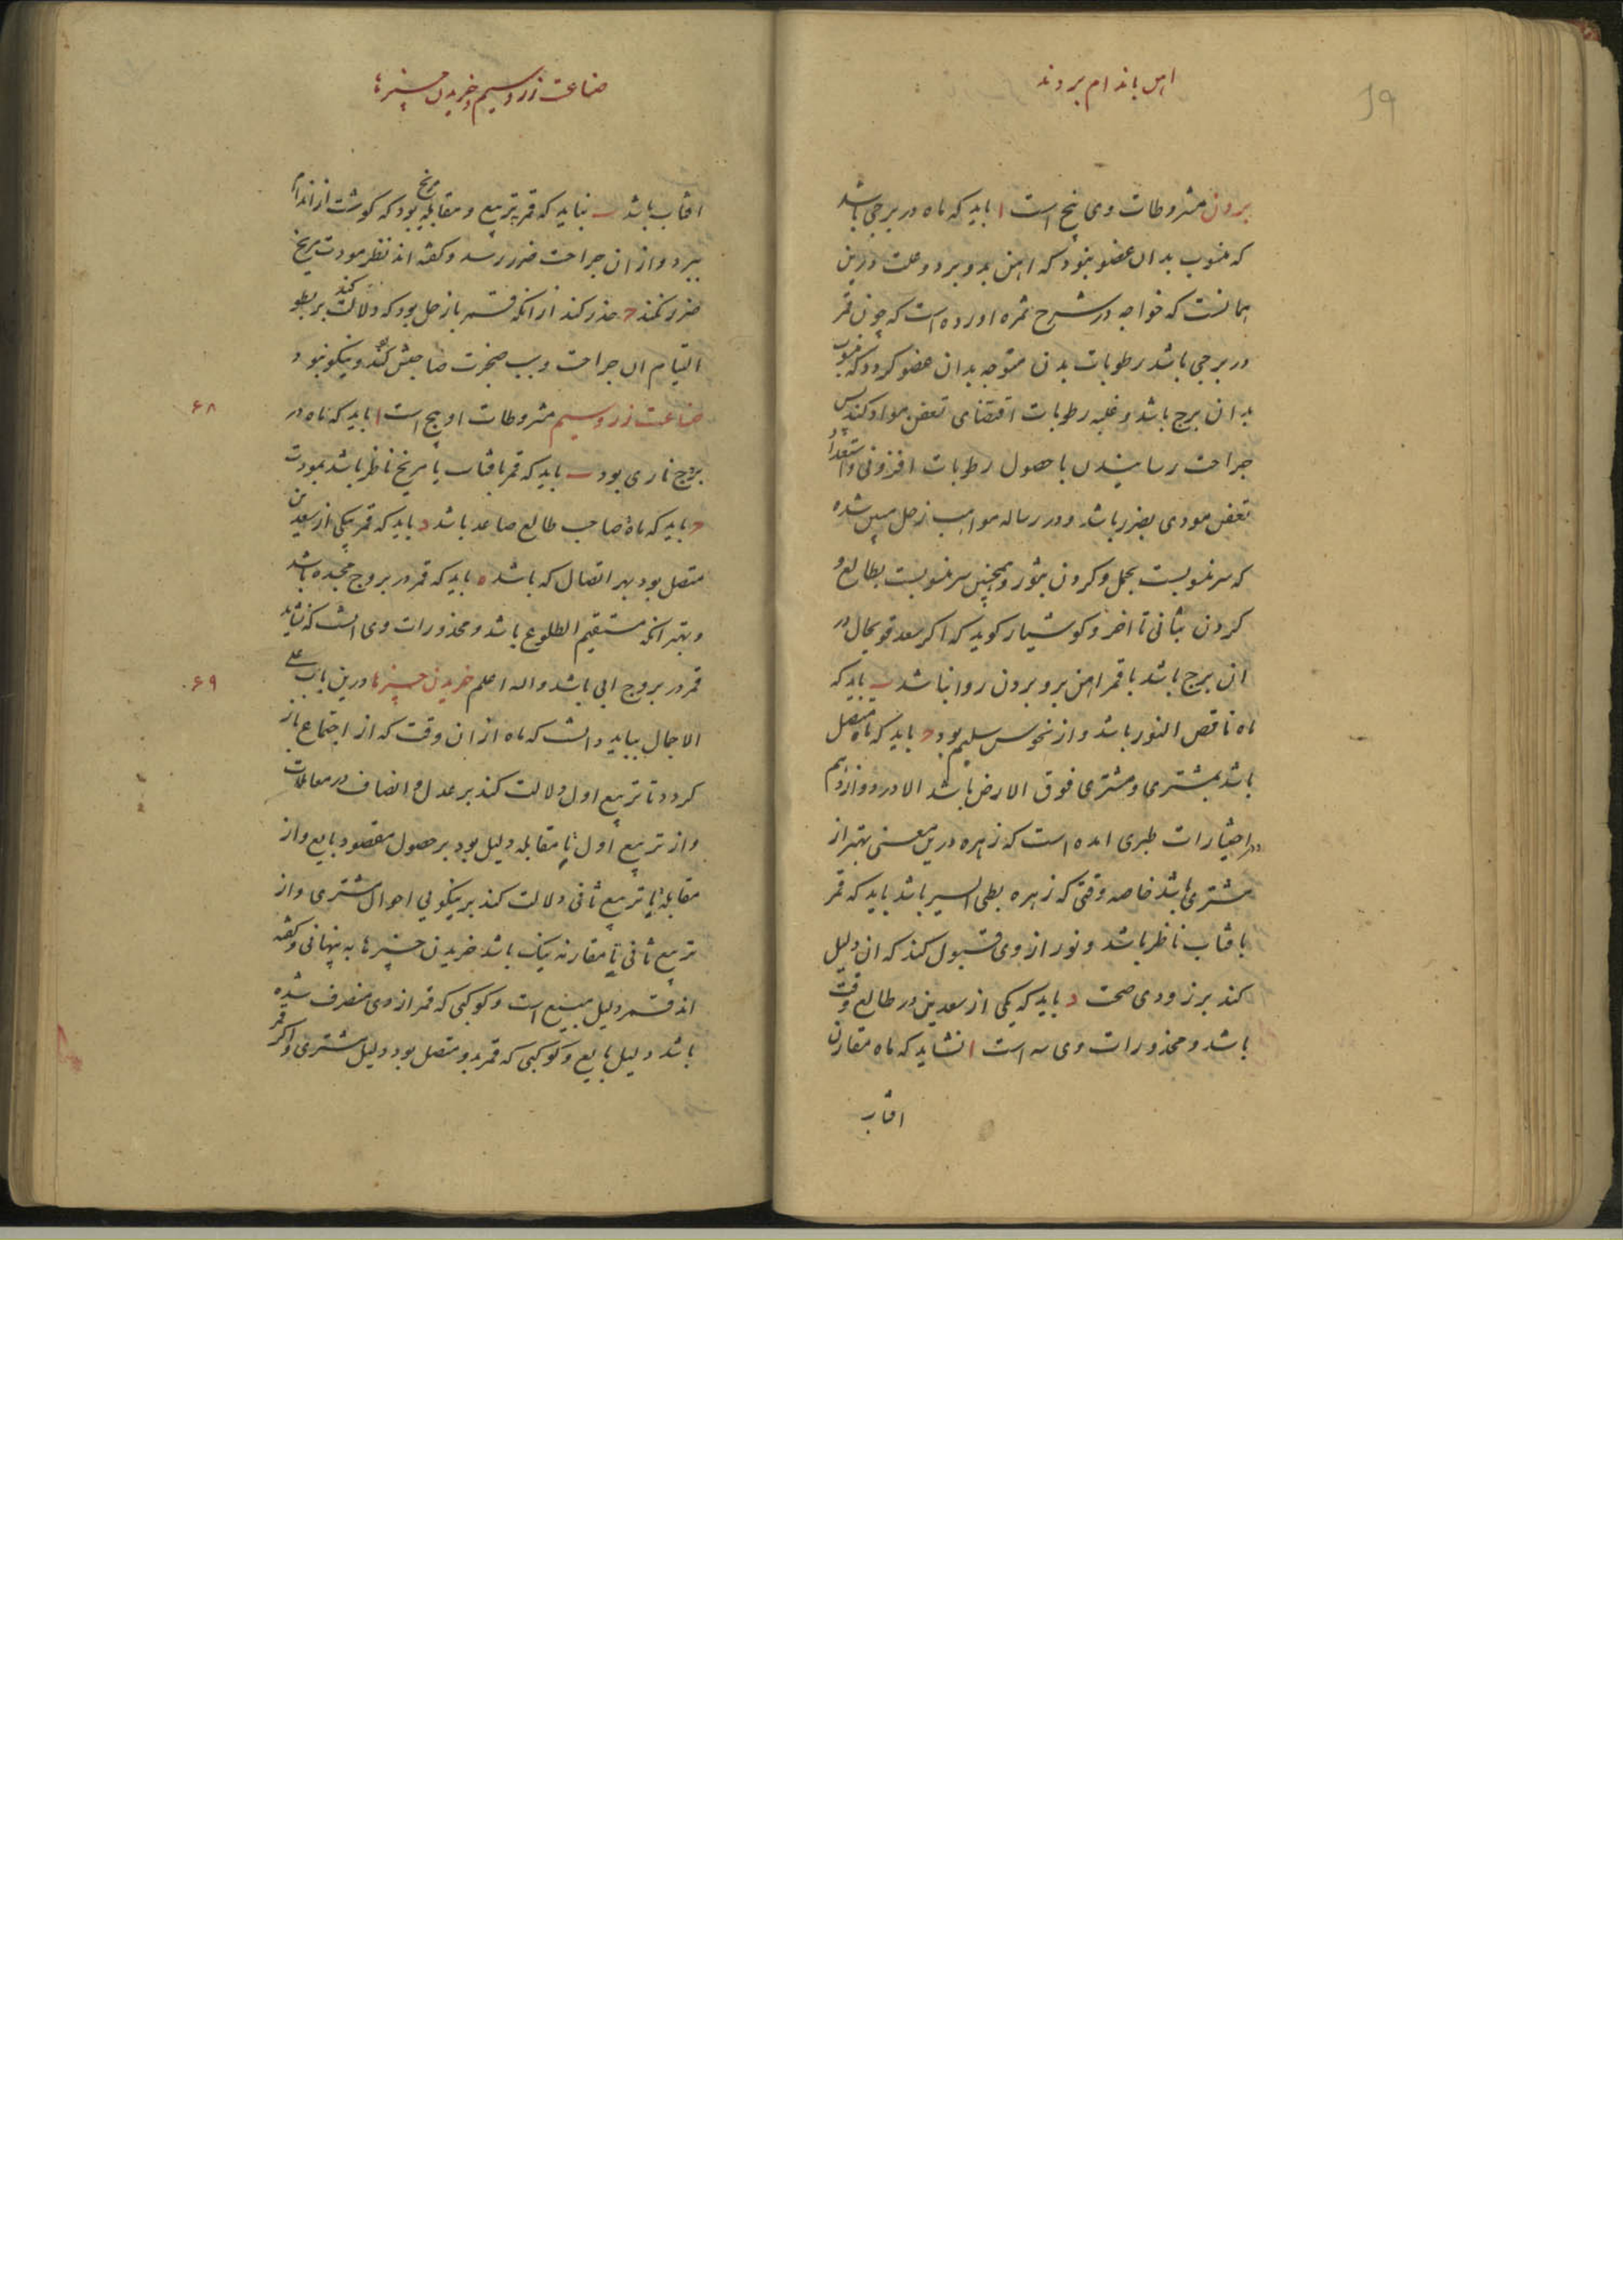 اهن باندام بردند
19
بردن مشروطات وی پنج است ا باید که ماه در برجی باشد
که منسوب بدان عضو نبود که اهن بدو برد و علت درین
همانست که خواجه در شرح ثمره اورده است که چون قمر
در برجی باشد رطوبات بدن متوجه بدان عضو کردد که منسوب
بدان برج باشد و غلبه رطوبات اقتضای تعفن مواد کند پس
جراحت رسانیدن با حصول رطوبات افزونی و استعداد
تعفن مودی بضرر باشد و در رساله مواهب زحل مبین شده
که سر منسوبست بحمل و کردن بثور و همچنین سر منسوبست بطالع و
کردن بثانی تا اخر و کوشیار کوید که اکر سعد قویحال در
ان برج باشد با قمر اهن برو بردن روا باشد ب باید که
ماه ناقص النور باشد و از نحوس سلیم بود ج باید که ماه متصل
باشد بمشتری و مشتری فوق الارض باشد الا در دوازدهم
در اختیارات طبری امده است که زهره درین معنی بهتر از
مشتری باشد خاصه وقتی که زهره بطی السیر باشد باید که قمر
بافتاب ناظر باشد و نور از وی قبول کند که ان دلیل
کند بر زودی صحت د باید که یکی از سعدین در طالع وقت
باشد و محذورات وی سه است ا نشاید که ماه مقارن
افتاب
صناعت زر و سیم و خریدن چیزها
افتاب باشد ب نباید که قمر بتربیع و مقابله مریخ بود که کوشت از اندام
ببرد و از ان جراحت ضرر رسد و کفته اند نظر مودت مریخ
ضرر نکند ج حذر کند از انکه قمر با زحل بود که دلالت کند بر بطو
التیام ان جراحت و سبب ضجرت صاحبش کند و نیکو نبود
صناعت زر و سیم مشروطات او پنج است ا باید که ماه در
۶۸
برج ناری بود ب باید که قمر بافتاب یا مریخ ناظر باشد بمودت
ج باید که ماه صاحب طالع صاعد باشد د باید که قمر بیکی از سعدین
متصل بود بهر اتصال که باشد ه باید که قمر در بروج مجسده باشد
و بهتر انکه مستقیم الطلوع باشد و محذورات وی انست که نشاید
قمر در بروج ابی باشد و الله اعلم خریدن چیزها درین باب علی
۶۹
الاجمال بباید دانست که ماه از ان وقت که از اجتماع باز
کردد تا تربیع اول دلالت کند بر عدل و انصاف در معاملات
و از تربیع اول تا مقابله دلیل بود بر حصول مقصود بایع و از
مقابله تا تربیع ثانی دلالت کند بر نیکویی احوال مشتری و از
تربیع ثانی تا مقارنه نیک باشد خریدن چیزها به پنهانی و کفته
اند قمر دلیل مبیع است و کوکبی که قمر از وی منصرف شده
باشد دلیل بایع و کوکبی که قمر بدو متصل بود دلیل مشتری و اکر قمر